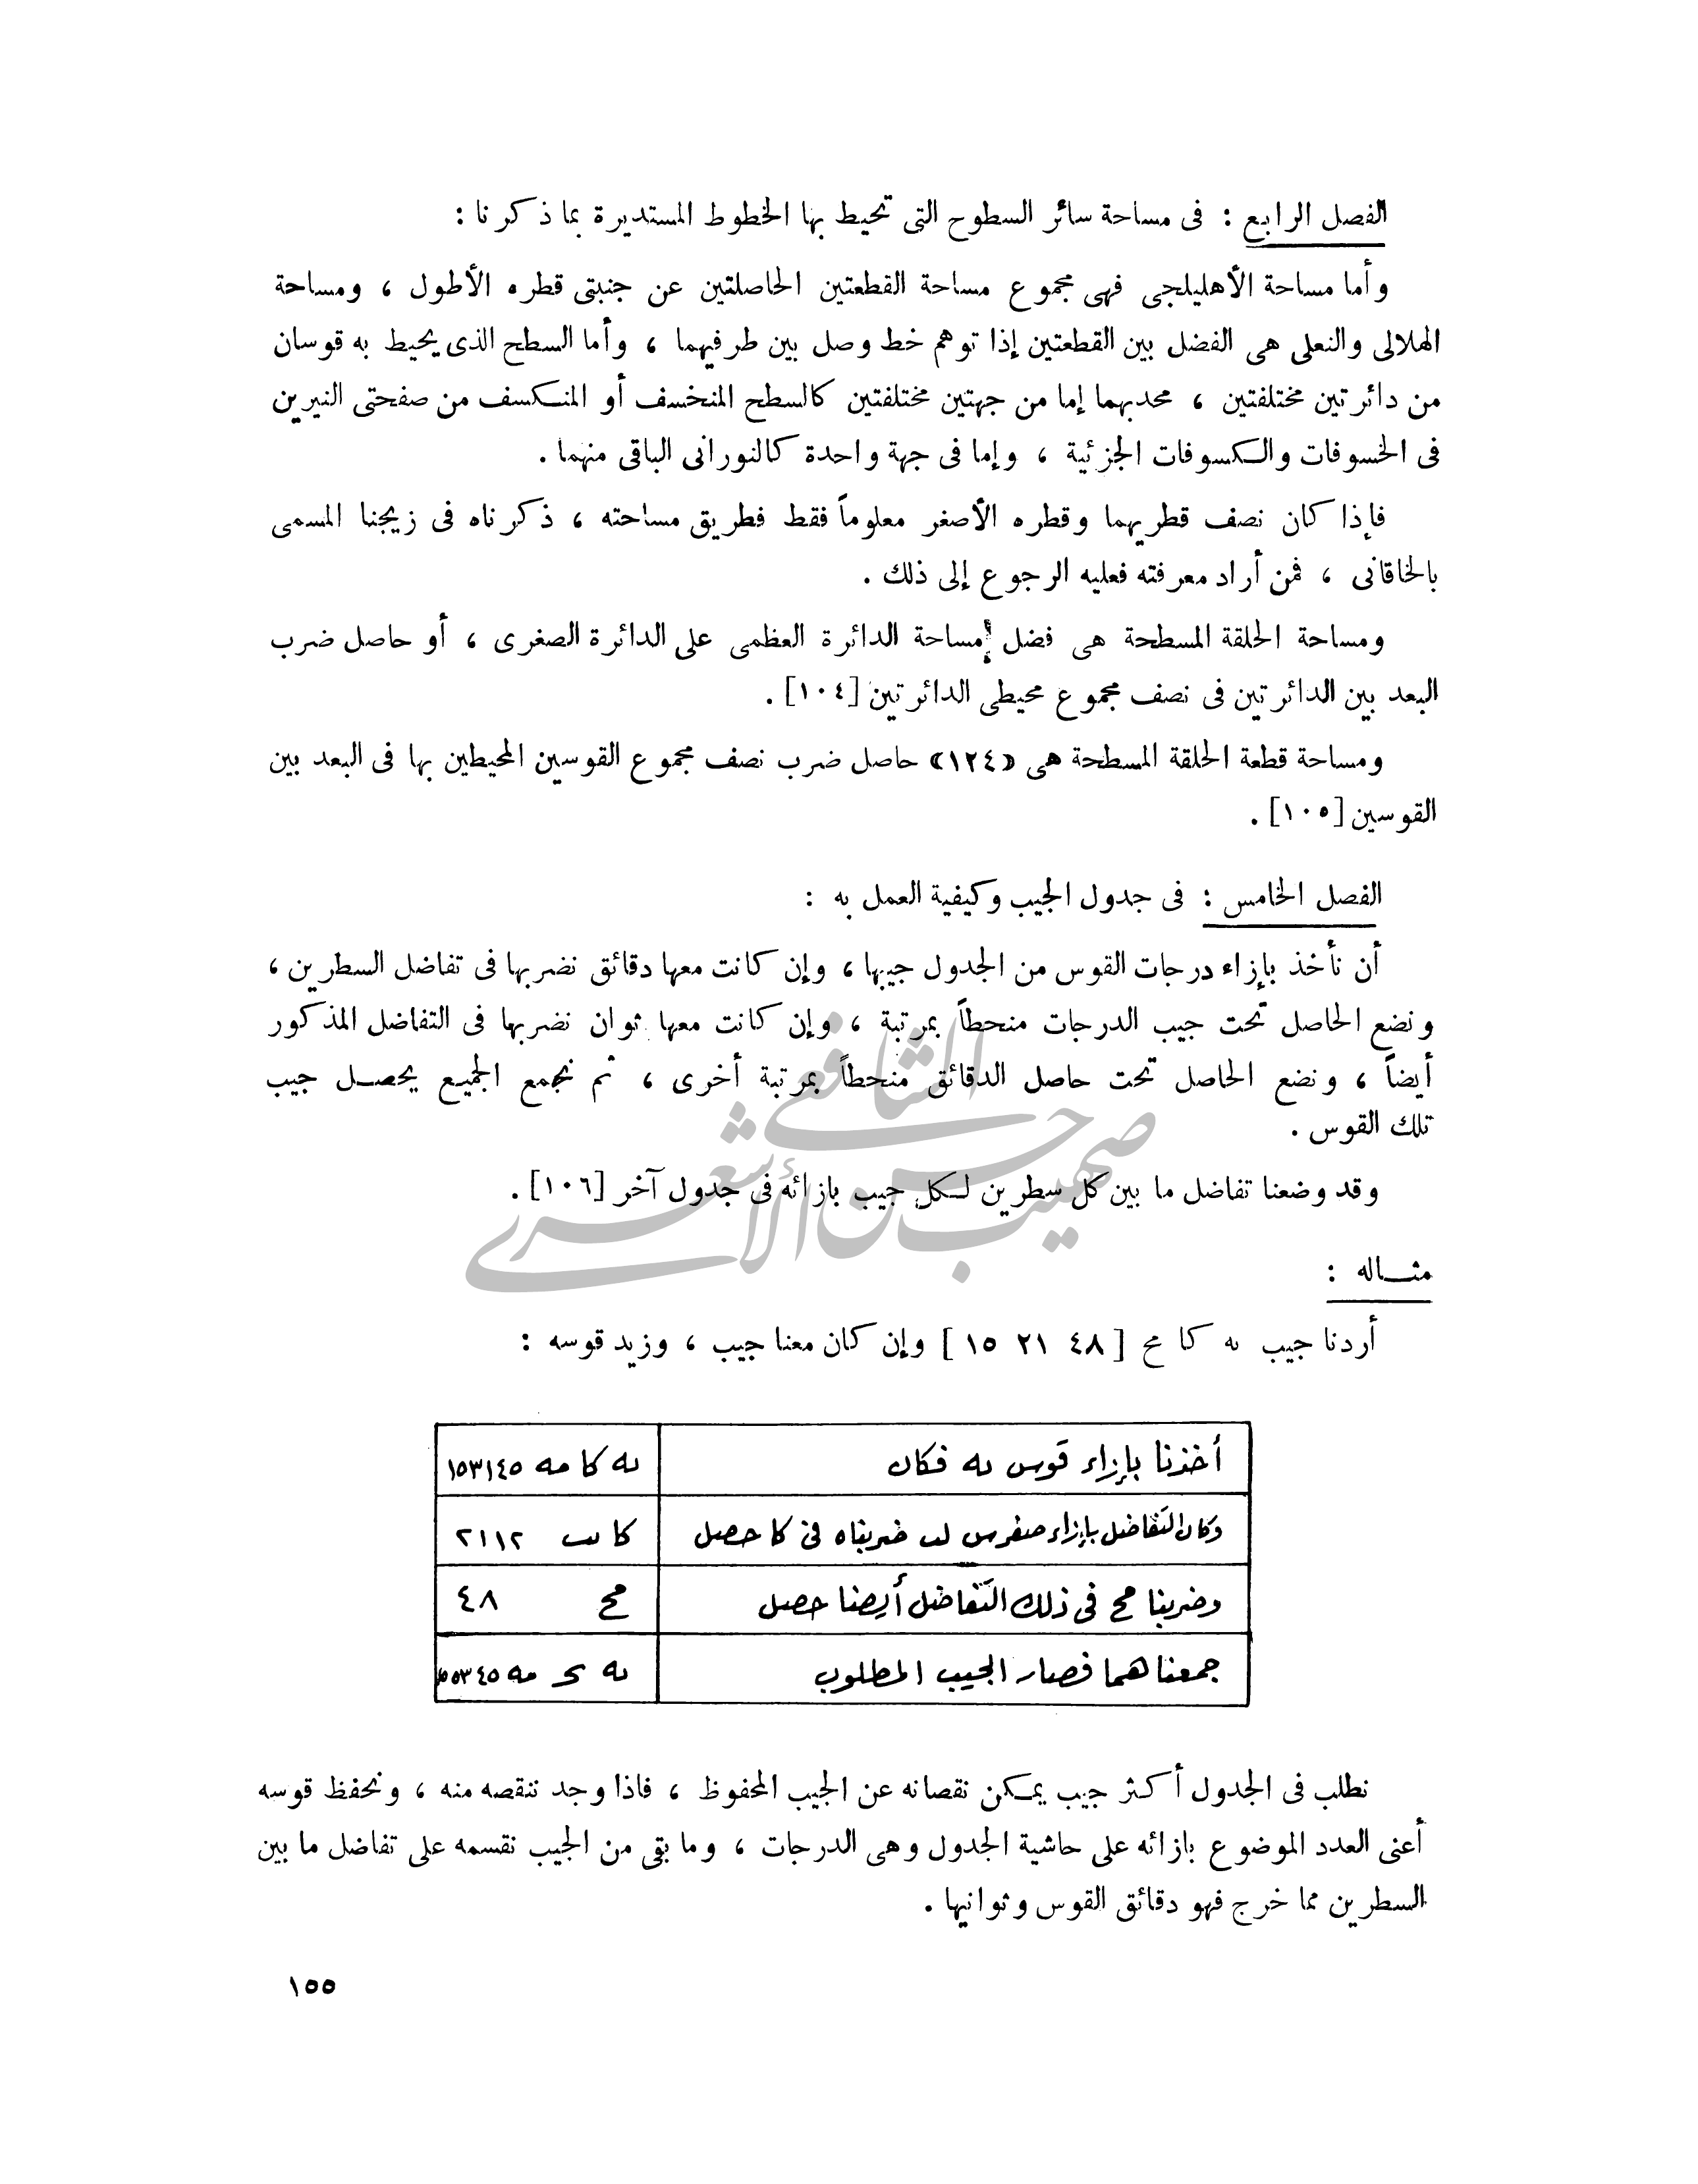 الفصل الرابع : فى مساحة سائر السطوح التى تحيط بها الخطوط المستديرة بما ذكرنا :
وأما مساحة الأهليلجى فهى مجموع مساحة القطعتين الحاصلتين عن جنبتى قطره الأطول ، ومساحة
الهلالى والنعلى هى الفضل بين القطعتين إذا توهم خط وصل بين طرفيهما ، وأما السطح الذى يحيط به قوسان
من دائرتين مختلفتين ، محدبهما إما من جهتين مختلفتين كالسطح المنخسف أو المنكسف من صفحتى النيرين
فى الخسوفات والكسوفات الجزئية ، وإما فى جهة واحدة كالنورانى الباقى منهما .
فإذا كان نصف قطريهما وقطره الأصغر معلوماً فقط فطريق مساحته ، ذكرناه فى زيجنا المسمى
بالخاقانى ، فمن أراد معرفته فعليه الرجوع إلى ذلك .
ومساحة الحلقة المسطحة هى فضل مساحة الدائرة العظمى على الدائرة الصغرى ، أو حاصل ضرب
البعد بين الدائرتين فى نصف مجموع محيطى الدائرتين [١٠٤] .
ومساحة قطعة الحلقة المسطحة هى «١٢٤» حاصل ضرب نصف مجموع القوسين المحيطين بها فى البعد بين
القوسين [١٠٥] .
الفصل الخامس : فى جدول الجيب وكيفية العمل به :
أن نأخذ بإزاء درجات القوس من الجدول جيبها ، وإن كانت معها دقائق نضربها فى تفاضل السطرين ،
ونضع الحاصل تحت جيب الدرجات منحطاً بمرتبة ، وإن كانت معها ثوان نضربها فى التفاضل المذكور
أيضاً ، ونضع الحاصل تحت حاصل الدقائق منحطاً بمرتبة أخرى ، ثم نجمع الجميع يحصل جيب
تلك القوس .
وقد وضعنا تفاضل ما بين كل سطرين لكل جيب بازائه فى جدول آخر [١٠٦] .
صهيب حسن الشافعي الأشعري
مثاله :
أردنا جيب ىه كا مح [ ٤٨ ٢١ ١٥ ] وإن كان معنا جيب ، وزيد قوسه :
أخذنا بإزاء قوس ىه فكان ىه كا مه ١٥٣١٤٥
وكان التفاضل بإزاء ضربناه فى كا حصل كا ىب ٢١١٢
وضربنا مح فى ذلك التفاضل أيضا حصل مح ٤٨
جمعناهما فصار الجيب المطلوب ىه مه
نطلب فى الجدول أكثر جيب يمكن نقصانه عن الجيب المحفوظ ، فاذا وجد ننقصه منه ، ونحفظ قوسه
أعنى العدد الموضوع بازائه على حاشية الجدول وهى الدرجات ، وما بقى من الجيب نقسمه على تفاضل ما بين
السطرين مما خرج فهو دقائق القوس وثوانيها .
١٥٥